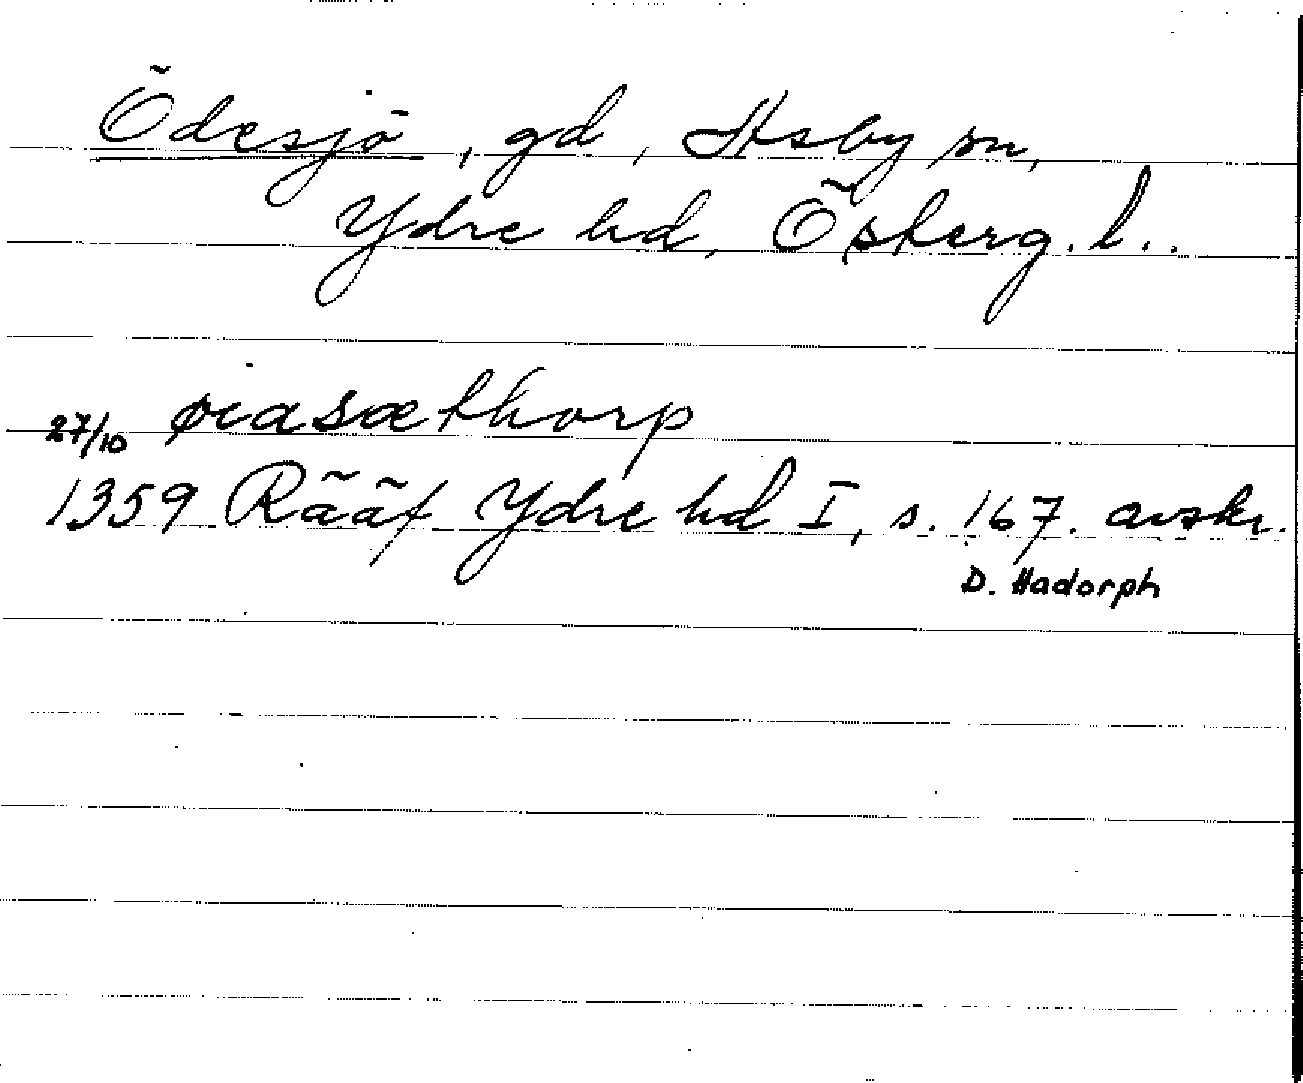 Ödesjö, gd, Asby sn,
Ydre hd, Österg. l..
27/10 øiasæthorp
1359 Rääf Ydre hd I, s. 167. avskr.
D. Hadorph